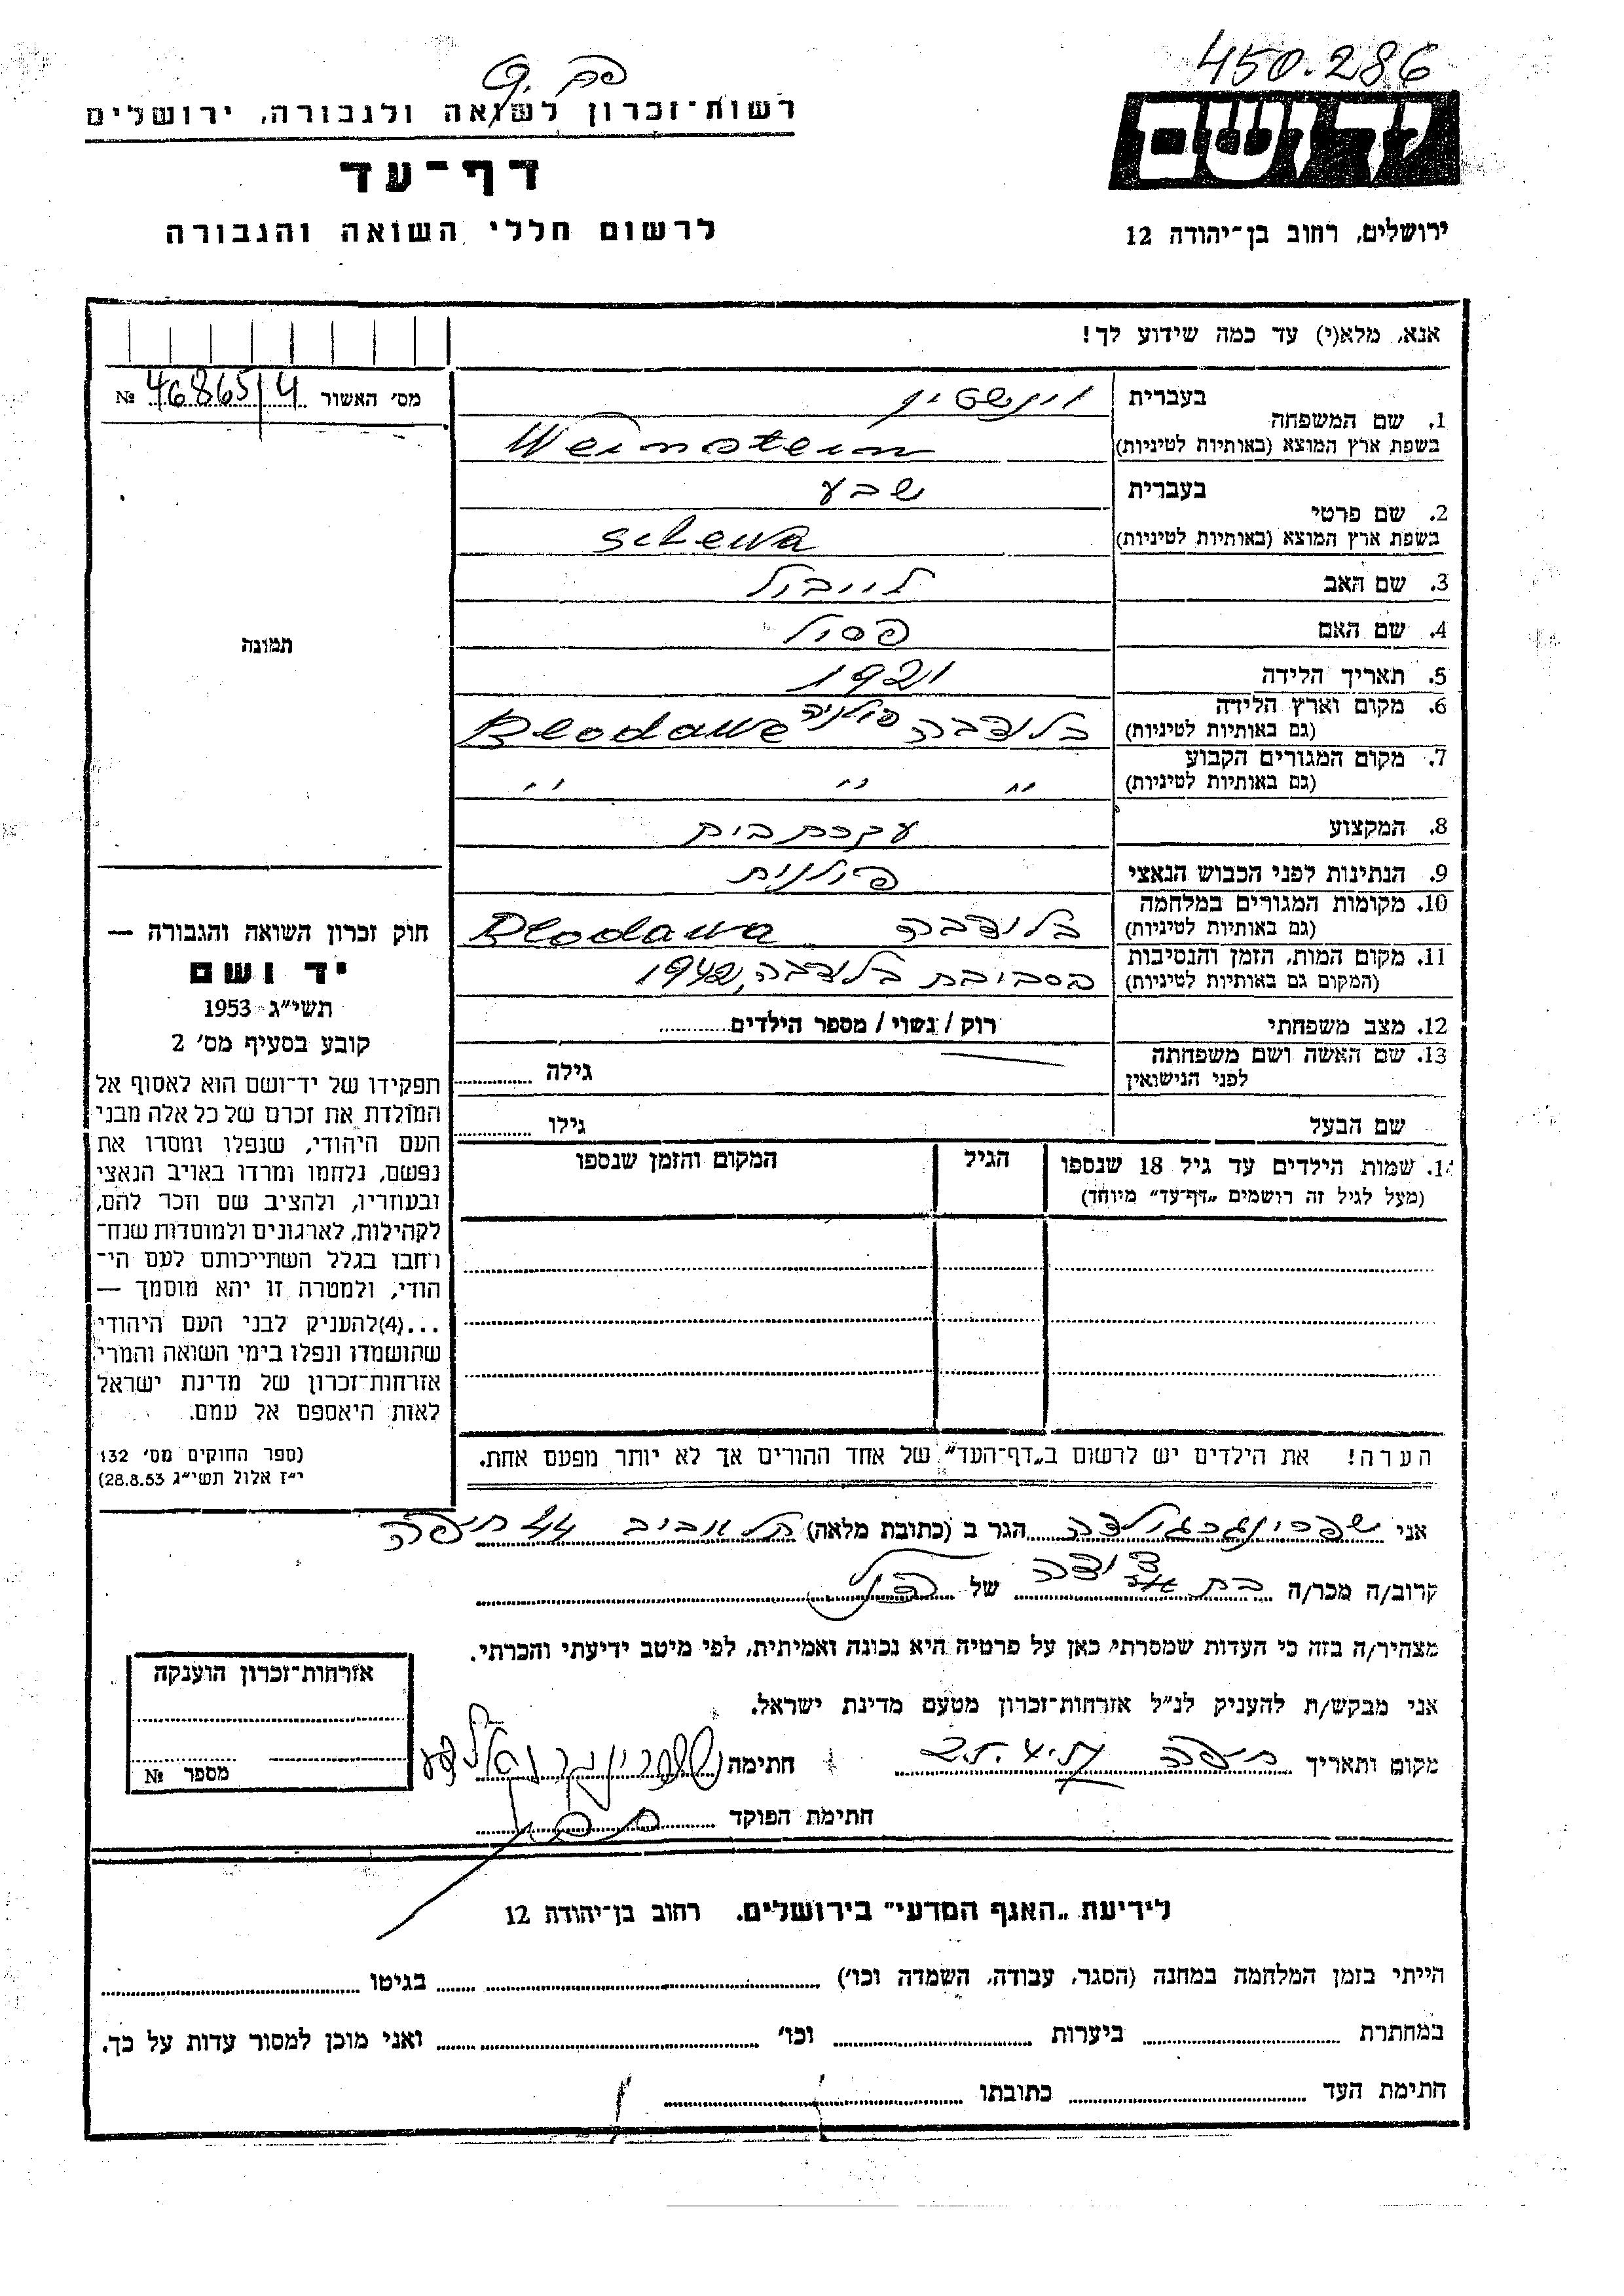 450.286
רשות-זכרון לשואה ולגבורה, ירושלים
דף-עד
לרשום חללי השואה והגבורה
ידושם
ירושלים, רחוב בן-יהודה 12
אנא, מלא(י) עד כמה שידוע לך!
מס' האשור 46865/4 №
תמונה
1. שם המשפחה בעברית וינשטיין
בשפת ארץ המוצא (באותיות לטיניות) Weinstein
2. שם פרטי בעברית שבע
בשפת ארץ המוצא (באותיות לטיניות) Schewa
3. שם האב לייבול
4. שם האם פסול
5. תאריך הלידה 1921
6. מקום וארץ הלידה בלודבה פולניה Blodawe
(גם באותיות לטיניות)
7. מקום המגורים הקבוע " " "
(גם באותיות לטיניות)
8. המקצוע עקרת בית
9. הנתינות לפני הכבוש הנאצי פולנית
10. מקומות המגורים במלחמה בלודבה Blodawa
(גם באותיות לטיניות)
11. מקום המות, הזמן והנסיבות בסביבת בלודבה, 1942
(המקום גם באותיות לטיניות)
12. מצב משפחתי רוק / נשוי / מספר הילדים
13. שם האשה ושם משפחתה גילה
לפני הנישואין
שם הבעל גילו
1. שמות הילדים עד גיל 18 שנספו הגיל המקום והזמן שנספו
(מעל לגיל זה רושמים „דף-עד" מיוחד)
הערה! את הילדים יש לרשום ב„דף-העד" של אחד ההורים אך לא יותר מפעם אחת.
חוק זכרון השואה והגבורה —
יד ושם
תשי"ג 1953
קובע בסעיף מס' 2
תפקידו של יד-ושם הוא לאסוף אל
המולדת את זכרם של כל אלה מבני
העם היהודי, שנפלו ומסרו את
נפשם, נלחמו ומרדו באויב הנאצי
ובעוזריו, ולהציב שם וזכר להם,
לקהילות, לארגונים ולמוסדות שנח-
רחבו בגלל השתייכותם לעם הי-
הודי, ולמטרה זו יהא מוסמך —
...(4) להעניק לבני העם היהודי
שהושמדו ונפלו בימי השואה והמרי
אזרחות-זכרון של מדינת ישראל
לאות היאספם אל עמם.
(ספר החוקים מס' 132
י"ז אלול תשי"ג 28.8.53)
אני הגר ב (כתובת מלאה) תל אביב 44 חיפה
קרוב/ה מכר/ה בת דודה של הנ"ל
מצהיר/ה בזה כי העדות שמסרתי כאן על פרטיה היא נכונה ואמיתית, לפי מיטב ידיעתי והכרתי.
אני מבקש/ת להעניק לנ"ל אזרחות-זכרון מטעם מדינת ישראל.
מקום ותאריך חיפה חתימה
חתימת הפוקד
אזרחות-זכרון הוענקה
מספר №
לידיעת „האגף המדעי" בירושלים. רחוב בן-יהודה 12
הייתי בזמן המלחמה במחנה (הסגר, עבודה, השמדה וכו') בגיטו
במחתרת ביערות וכו' ואני מוכן למסור עדות על כך.
חתימת העד כתובתו